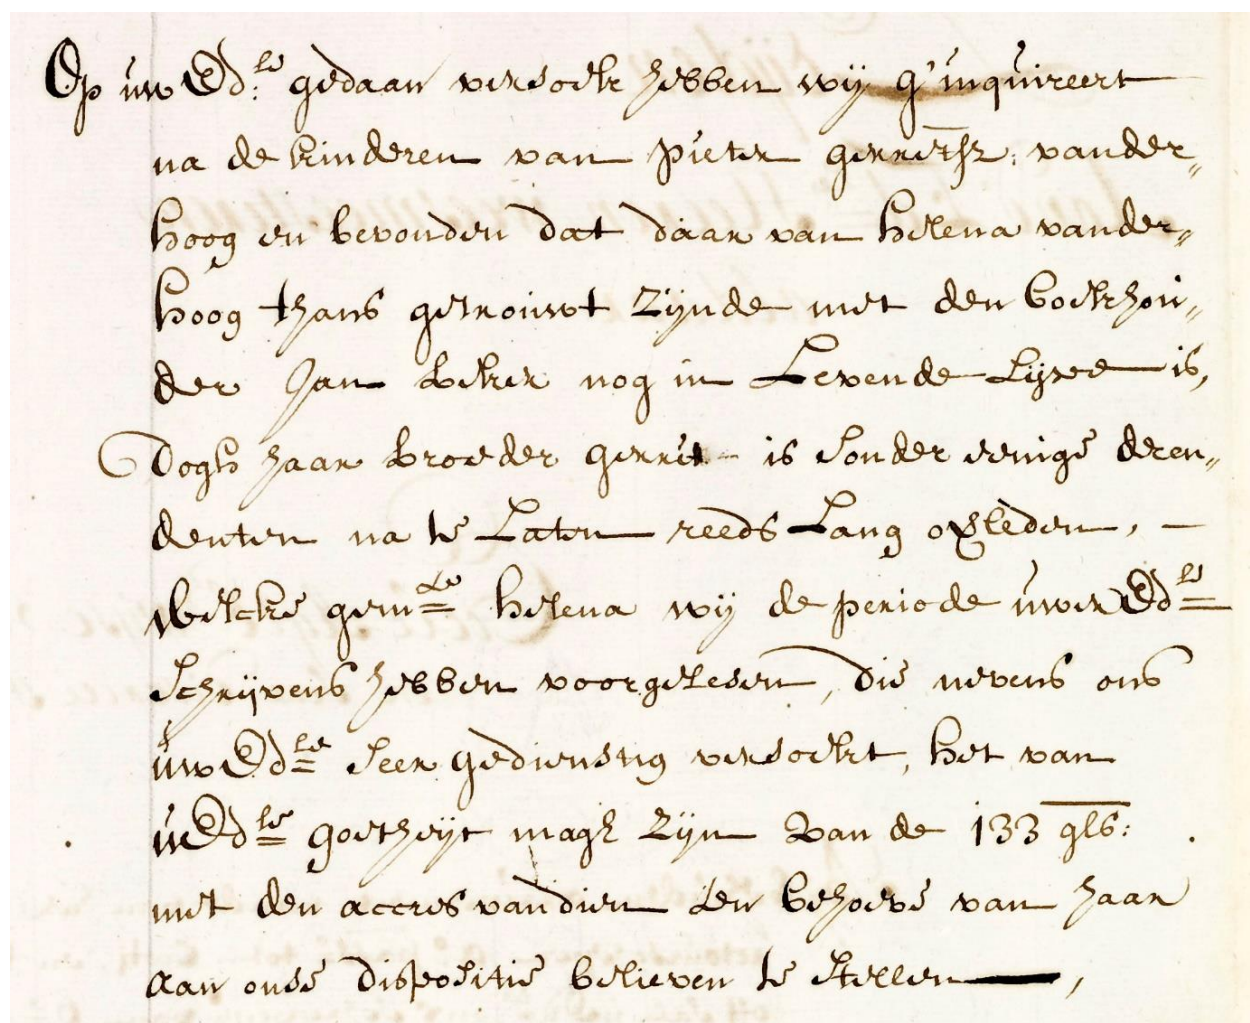 Op uw Ed:le gedaan versoek hebben wij g'inquireert
na de kinderen van Pieter gerritsz: vander„
hoog en bevonden dat daar van helena vander„
hoog thans getrouwt zijnde met den boekhou„
der Jan Beker nog in Levende Lijve is,
dogh haar Broeder gerrit is sonder eenige decen„
denten na te Laten reeds Lang overleden, —
welcke gemle helena wij de periode uwer Edle
schrijvens hebben voorgelesen, die nevens ons
uw Edle seer gedienstig versoekt, het van
uEdle goetheijt magh zijn van de 133 gls:
met den accres van dien ten behoeve van haar
aan onse dispositie believen te stellen —,